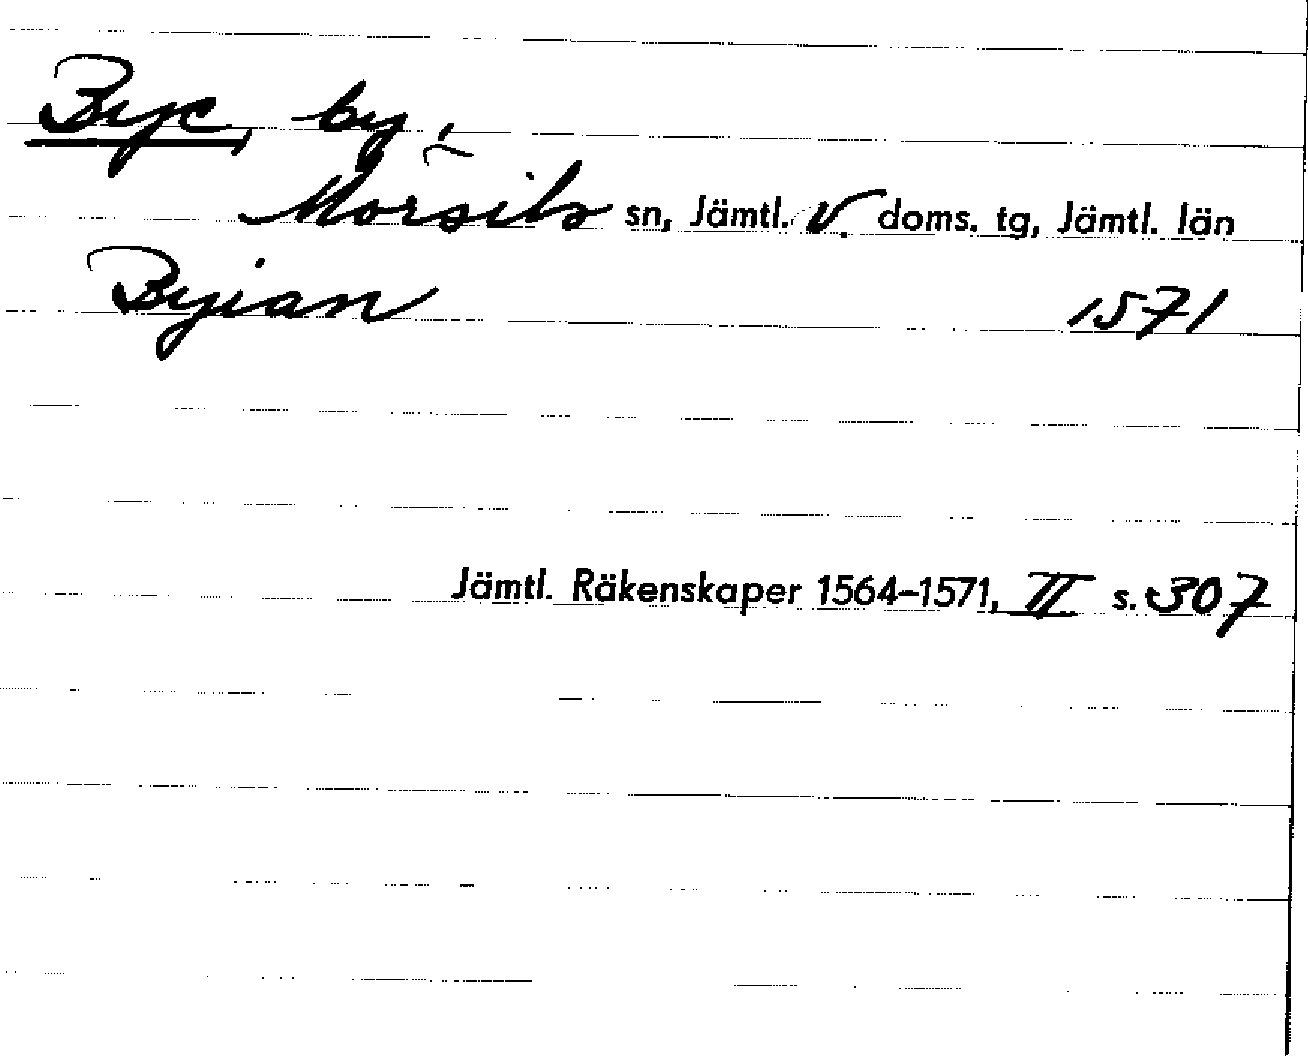 Bye, by,
Morsils sn, Jämtl. V. doms. tg, Jämtl. län
Byian 1571
Jämtl. Räkenskaper 1564-1571, II s. 307